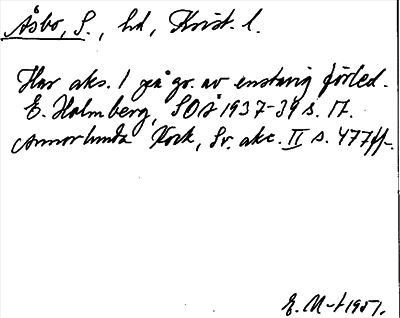 Åsbo, S., hd, Krist. l.
Har aks. 1 på gr. av enstavig förled.
E. Holmberg, SOÅ 1937-39 s. 17.
Annorlunda Kock, Sv. akc. II s. 477ff.
E. M-t 1951.